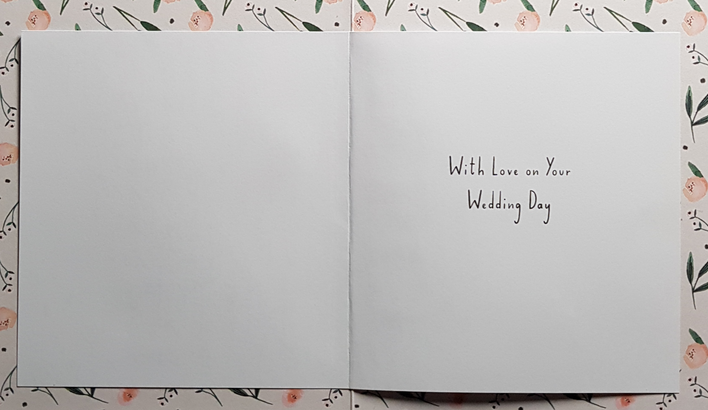 With Love on Your
Wedding Day